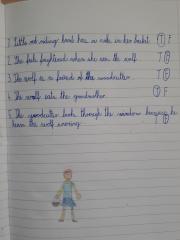 1. Little red riding hood has a cake in her basket. T F
2. She feels frightened when she sees the wolf. T F
3. The wolf is a friend of the woodcutter. T F
4. The wolf eats the grandmother. T F
5. The woodcutter looks through the window because he
hears the wolf snoring. T F